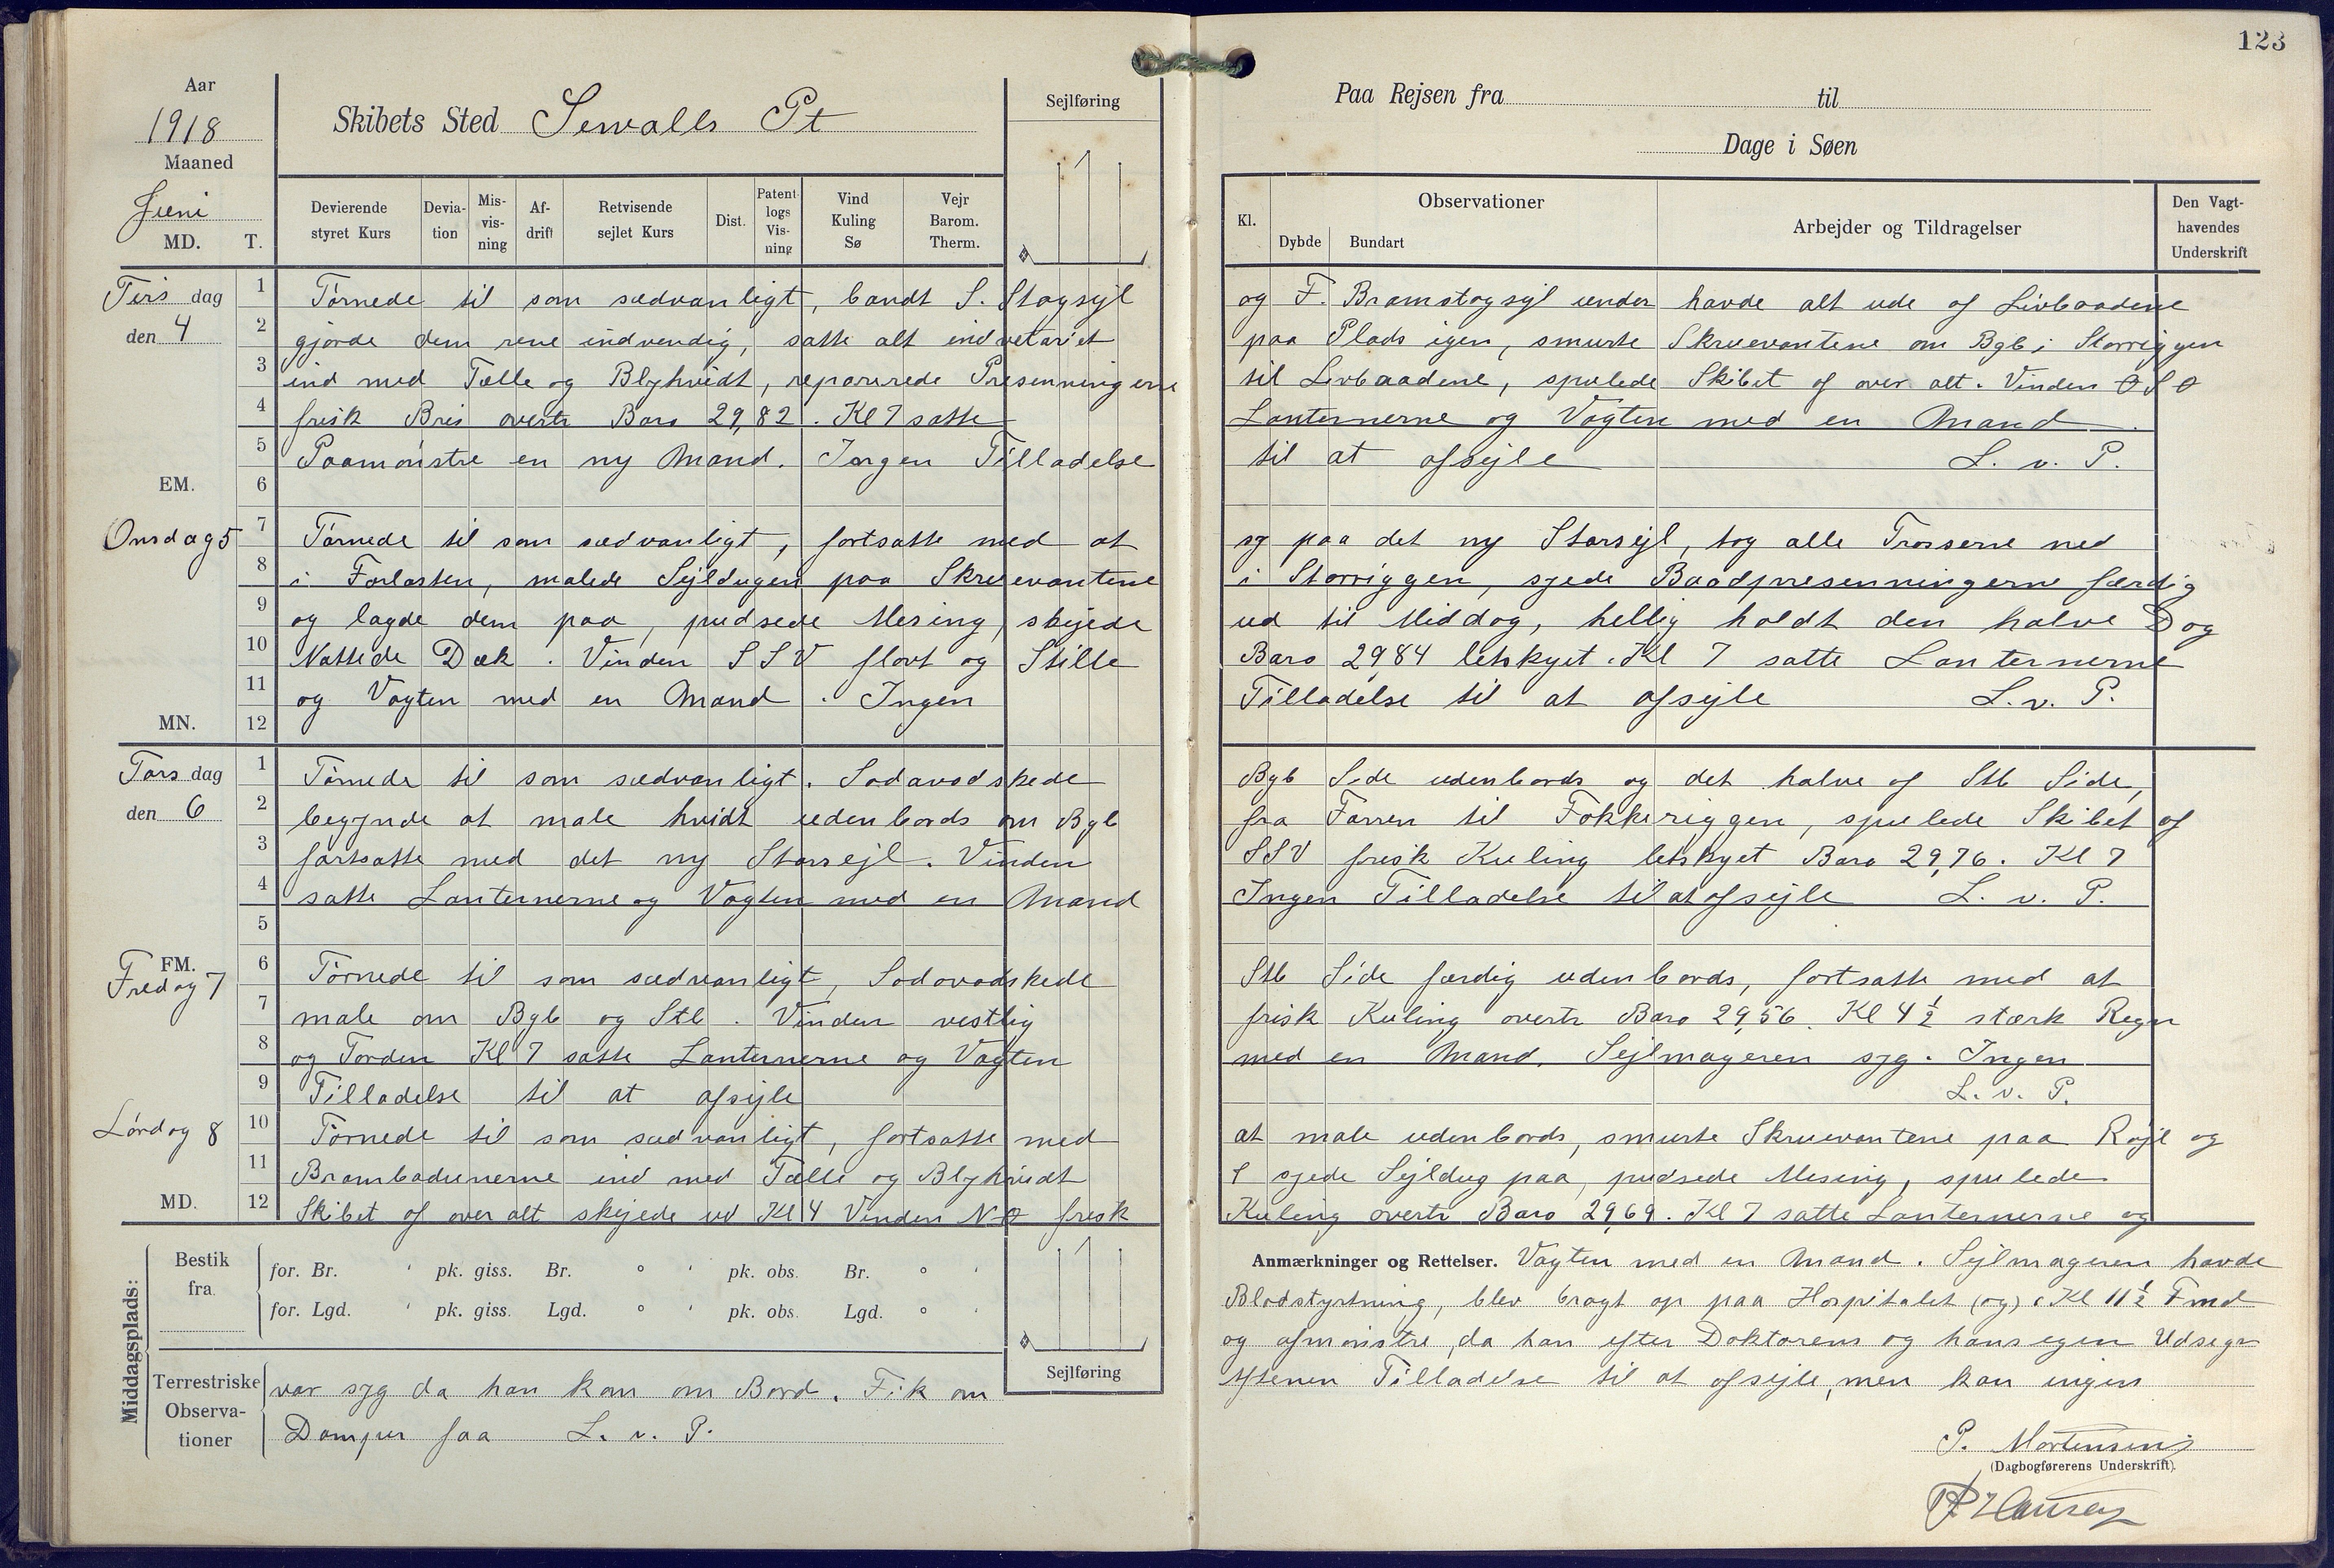 123
Aar
1918
Maaned
Juni
MD. T.
Skibets Sted Sewalls Pt
Sejlføring
Devierende styret Kurs
Devia-tion
Mis-vis-ning
Af-drift
Retvisende sejlet Kurs
Dist.
Patent-logs Vis-ning
Vind Kuling Sø
Vejr Barom. Therm.
Paa Rejsen fra til
Dage i Søen
Kl.
Observationer
Dybde Bundart
Arbejder og Tildragelser
Den Vagt-havendes Underskrift
Tirs dag
den 4
1 Tørnede til som sædvanligt, bandt S. Stagsejl og F. Bramstagsejl under havde alt ude af Livbaadene
2 gjorde dem rene indvendig, satte alt indvetariet paa Plads igen, smurte Skruevantene om Bgb i Storriggen
3 ind med Tælle og Blyhvidt, reparerede Presenningerne til Livbaadene, spulede Skibet af over alt. Vinden ØSØ
4 frisk Bris overtr Baro 29,82. Kl 7 satte Lanternerne og Vagten med en Mand.
5 Paamønstre en ny Mand. Ingen Tilladelse til at afsejle L. v. P.
EM. 6
Onsdag 5
7 Tørnede til som sædvanligt, fortsatte med at sy paa det ny Storsejl, tog alle Trosserne ned
8 i Forlasten, malede Sejldugen paa Skruevantene i Storriggen, syede Baadpresenningerne færdig
9 og lagde dem paa, pudsede Mesing, skyede ud til Middag, hellig holdt den halve Dag
10 Nattede Dæk. Vinden SSV flovt og Stille Baro 2984 letskyet. Kl 7 satte Lanternerne
11 og Vagten med en Mand. Ingen Tilladelse til at afsejle L. v. P.
MN. 12
Tors dag
den 6
1 Tørnede til som sædvanligt. Sodavadskede Bgb Side udenbords og det halve af Stb Side,
2 begynde at male hvidt udenbords om Bgb fra Farren til Fokkeriggen, spulede Skibet af
3 fortsatte med det ny Storsejl. Vinden SSV frisk Kuling letskyet Baro 29,76. Kl 7
4 satte Lanternerne og Vagten med en Mand Ingen Tilladelse til at afsejle L. v. P.
5
FM.
Fredag 7
6 Tørnede til som sædvanligt, Sodavadskede Stb Side færdig udenbords, fortsatte med at
7 male om Bgb og Stb. Vinden vestlig frisk Kuling overtr Baro 29,56. Kl 4½ stærk Regn
8 og Torden Kl 7 satte Lanternerne og Vagten med en Mand. Sejlmageren syg. Ingen
9 Tilladelse til at afsejle L. v. P.
Lørdag 8
10 Tørnede til som sædvanligt, fortsatte med at male udenbords, smurte Skruevantene paa Røjl og
11 Brambadunerne ind med Tælle og Blyhvidt syede Sejldug paa, pudsede Mesing, spulede
MD. 12 Skibet af over alt skejede ud Kl 4 Vinden NØ frisk Kuling overtr Baro 2969. Kl 7 satte Lanternerne og
Anmærkninger og Rettelser. Vagten med en Mand. Sejlmageren havde
Blodstyrtning, blev bragt op paa Hospitalet (og) Kl 11½ Fmd
og afmønstre, da han efter Doktorens og hans egen Udsegn
var syg da han kom om Bord. Fik om
Aftenen Tilladelse til at afsejle, men kan ingen
Damper faa L. v. P.
Middagsplads:
Bestik fra
for. Br. ' pk. giss. Br. ° ' pk. obs. Br. ° '
for. Lgd. ' pk. giss. Lgd. ° ' pk. obs. Lgd. ° '
Terrestriske Observa-tioner
Sejlføring
P. Mortensen
(Dagbogførerens Underskrift).
Hansen